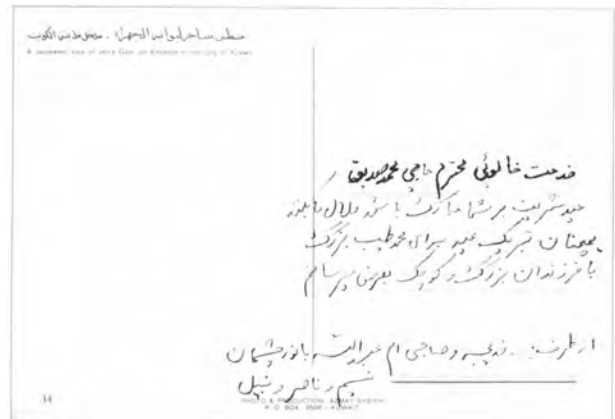 منظر ساحر لبوابة الجهراء . مدخل مدينة الكويت
A panoramic view of Jahra Gate, an Entrance to the City of Kuwait
خدمت خالوئی محترم حاجی محمد صدیق
عید شریف بر شما مبارک باشد
همچنان تبریک عید برای محمد طیب بزرگ
با فرزندان بزرگ و کوچک بعرض میرسانم
از طرف : خدیجه و حاجی ام عبدالله با نورچشمان
نسیم و ناصر و نبیل
14
PHOTO & PRODUCTION,
P. O. BOX - KUWAIT